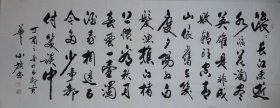 滚滚长江东逝
水浪花淘尽
英雄是非成
败转头空青
山依旧在几
度夕阳红白
发渔樵江渚
上惯看秋月
春风一壶浊
酒喜相逢古
今多少事都
付笑谈中
丁酉之春月